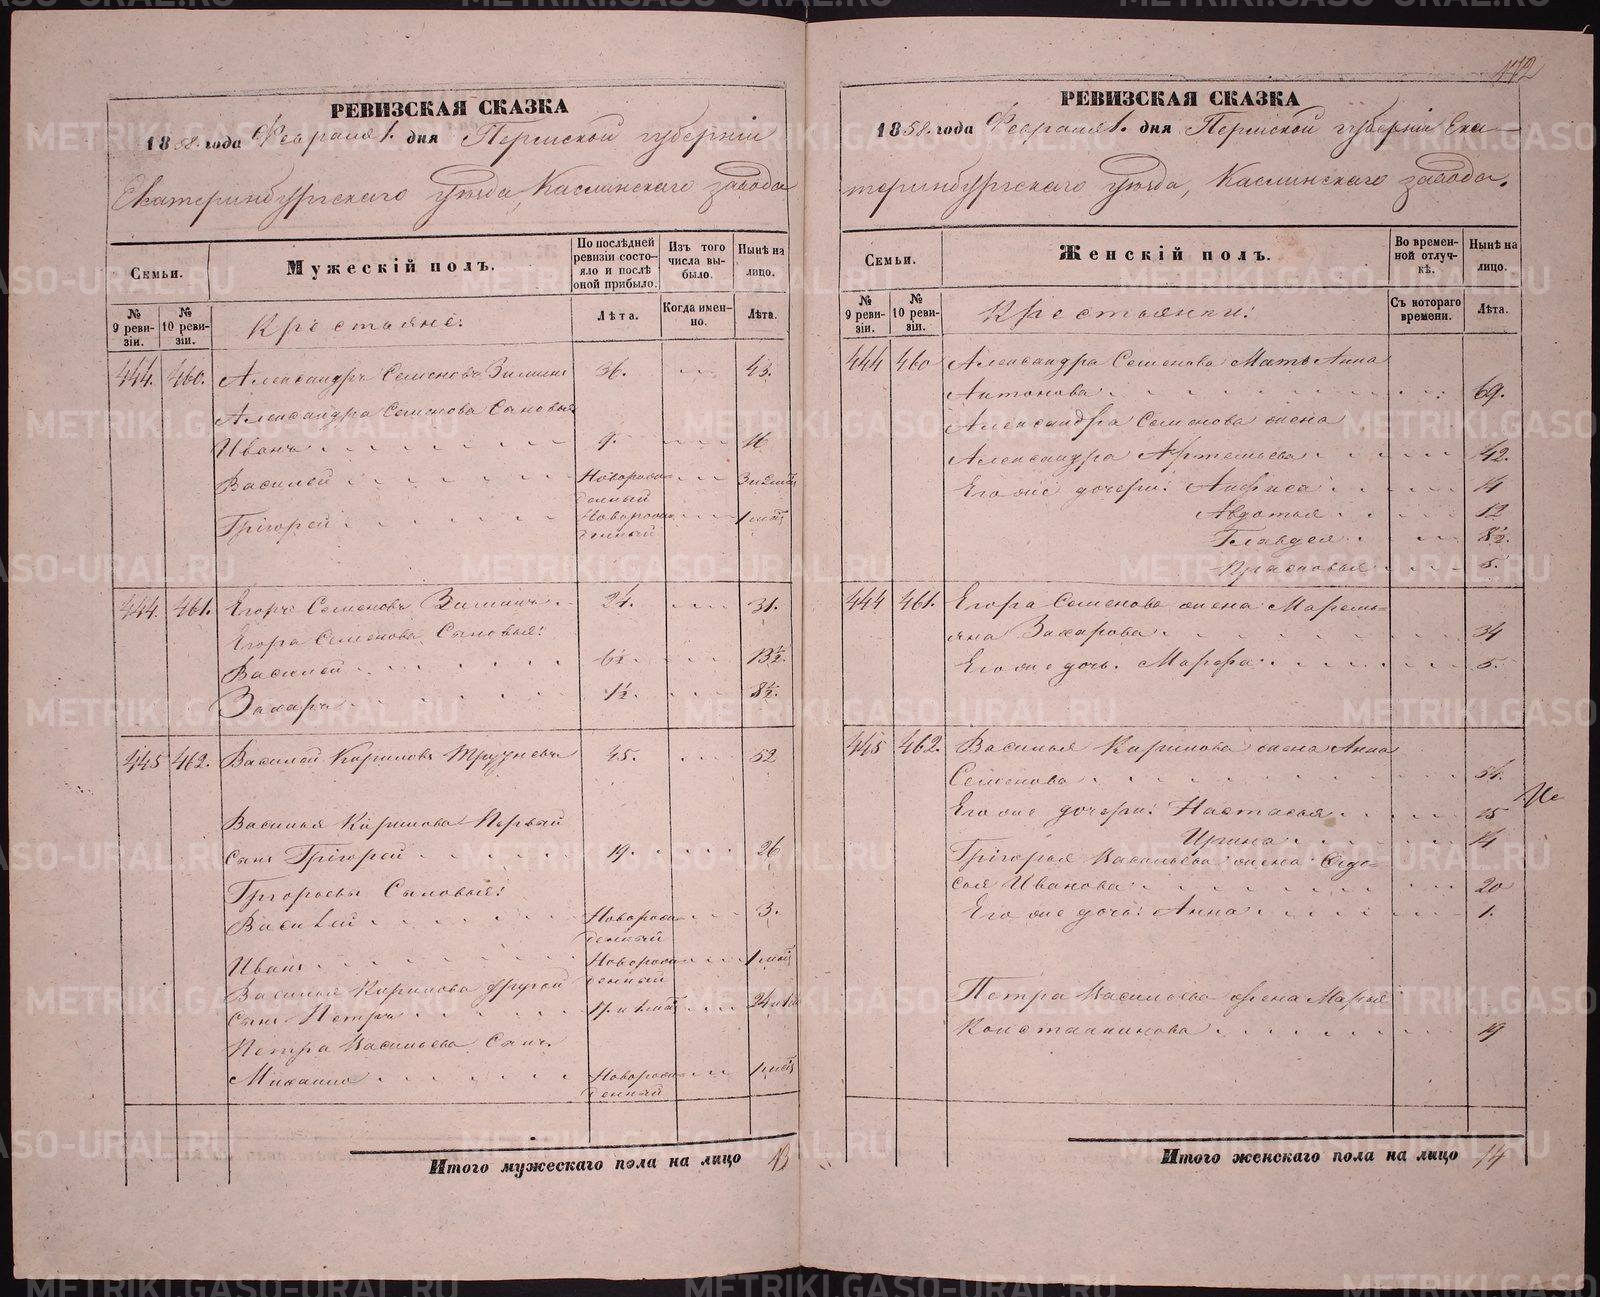 РЕВИЗСКАЯ СКАЗКА
1858. года Февраля 1. дня Пермской губерніи
Екатеринбургскаго уѣзда, Каслинскаго завода
Семьи.
Мужескій полъ.
По послѣдней ревизіи состояло и послѣ оной прибыло.
Изъ того числа выбыло.
Нынѣ на лицо.
№ 9 ревизіи.
№ 10 ревизіи.
Крестьяне:
Лѣта.
Когда именно.
Лѣта.
444. 460. Александръ Семеновъ Зиминъ 36. 43.
Александра Семенова Сыновья
Иванъ 9. 16
Василей Новорожденный 3 и 2 мѣс
Григорей Новорожденный 1 мѣс
444. 461. Егоръ Семеновъ Зиминъ 24. 31.
Егора Семенова Сыновья:
Василей 6½ 13½.
Захаръ 1½ 8½.
445 462. Василей Кириловъ 45. 52
Василья Кирилова Первый
сынъ Григорей 19. 26
Григорьевы Сыновья:
Василей Новорожденный 3.
Иванъ Новорожденный 1 мѣс
Василья Кирилова другой
сынъ Петръ
Петра Васильева Сынъ
Михаило Новорожденный 1 мѣс
Итого мужескаго пола на лицо 13
172
РЕВИЗСКАЯ СКАЗКА
1858. года Февраля 1. дня Пермской губерніи Ека-
теринбургскаго уѣзда, Каслинскаго завода.
Семьи.
Женскій полъ.
Во временной отлучкѣ.
Нынѣ на лицо.
№ 9 ревизіи.
№ 10 ревизіи.
Крестьянки:
Съ котораго времени.
Лѣта.
444 460 Александра Семенова Мать Анна
Антонова 69.
Александра Семенова жена
Александра Артемьева 42.
Его же дочери: Анфиса 14
Авдотья 12
Главдея 8½.
Прасковья 5.
444 461. Егора Семенова жена Маремь-
яна Захарова 34
Его же дочь. Марфа 5.
445 462. Василья Кирилова жена Анна
Семенова 54.
Его же дочери: Настасья 15
Ирина 14
Григорья Васильева жена Федо-
сья Иванова 20
Его же дочь: Анна 1.
Петра Васильева жена Марья
Константинова 19
Итого женскаго пола на лицо 14
METRIKI.GASO-URAL.RU